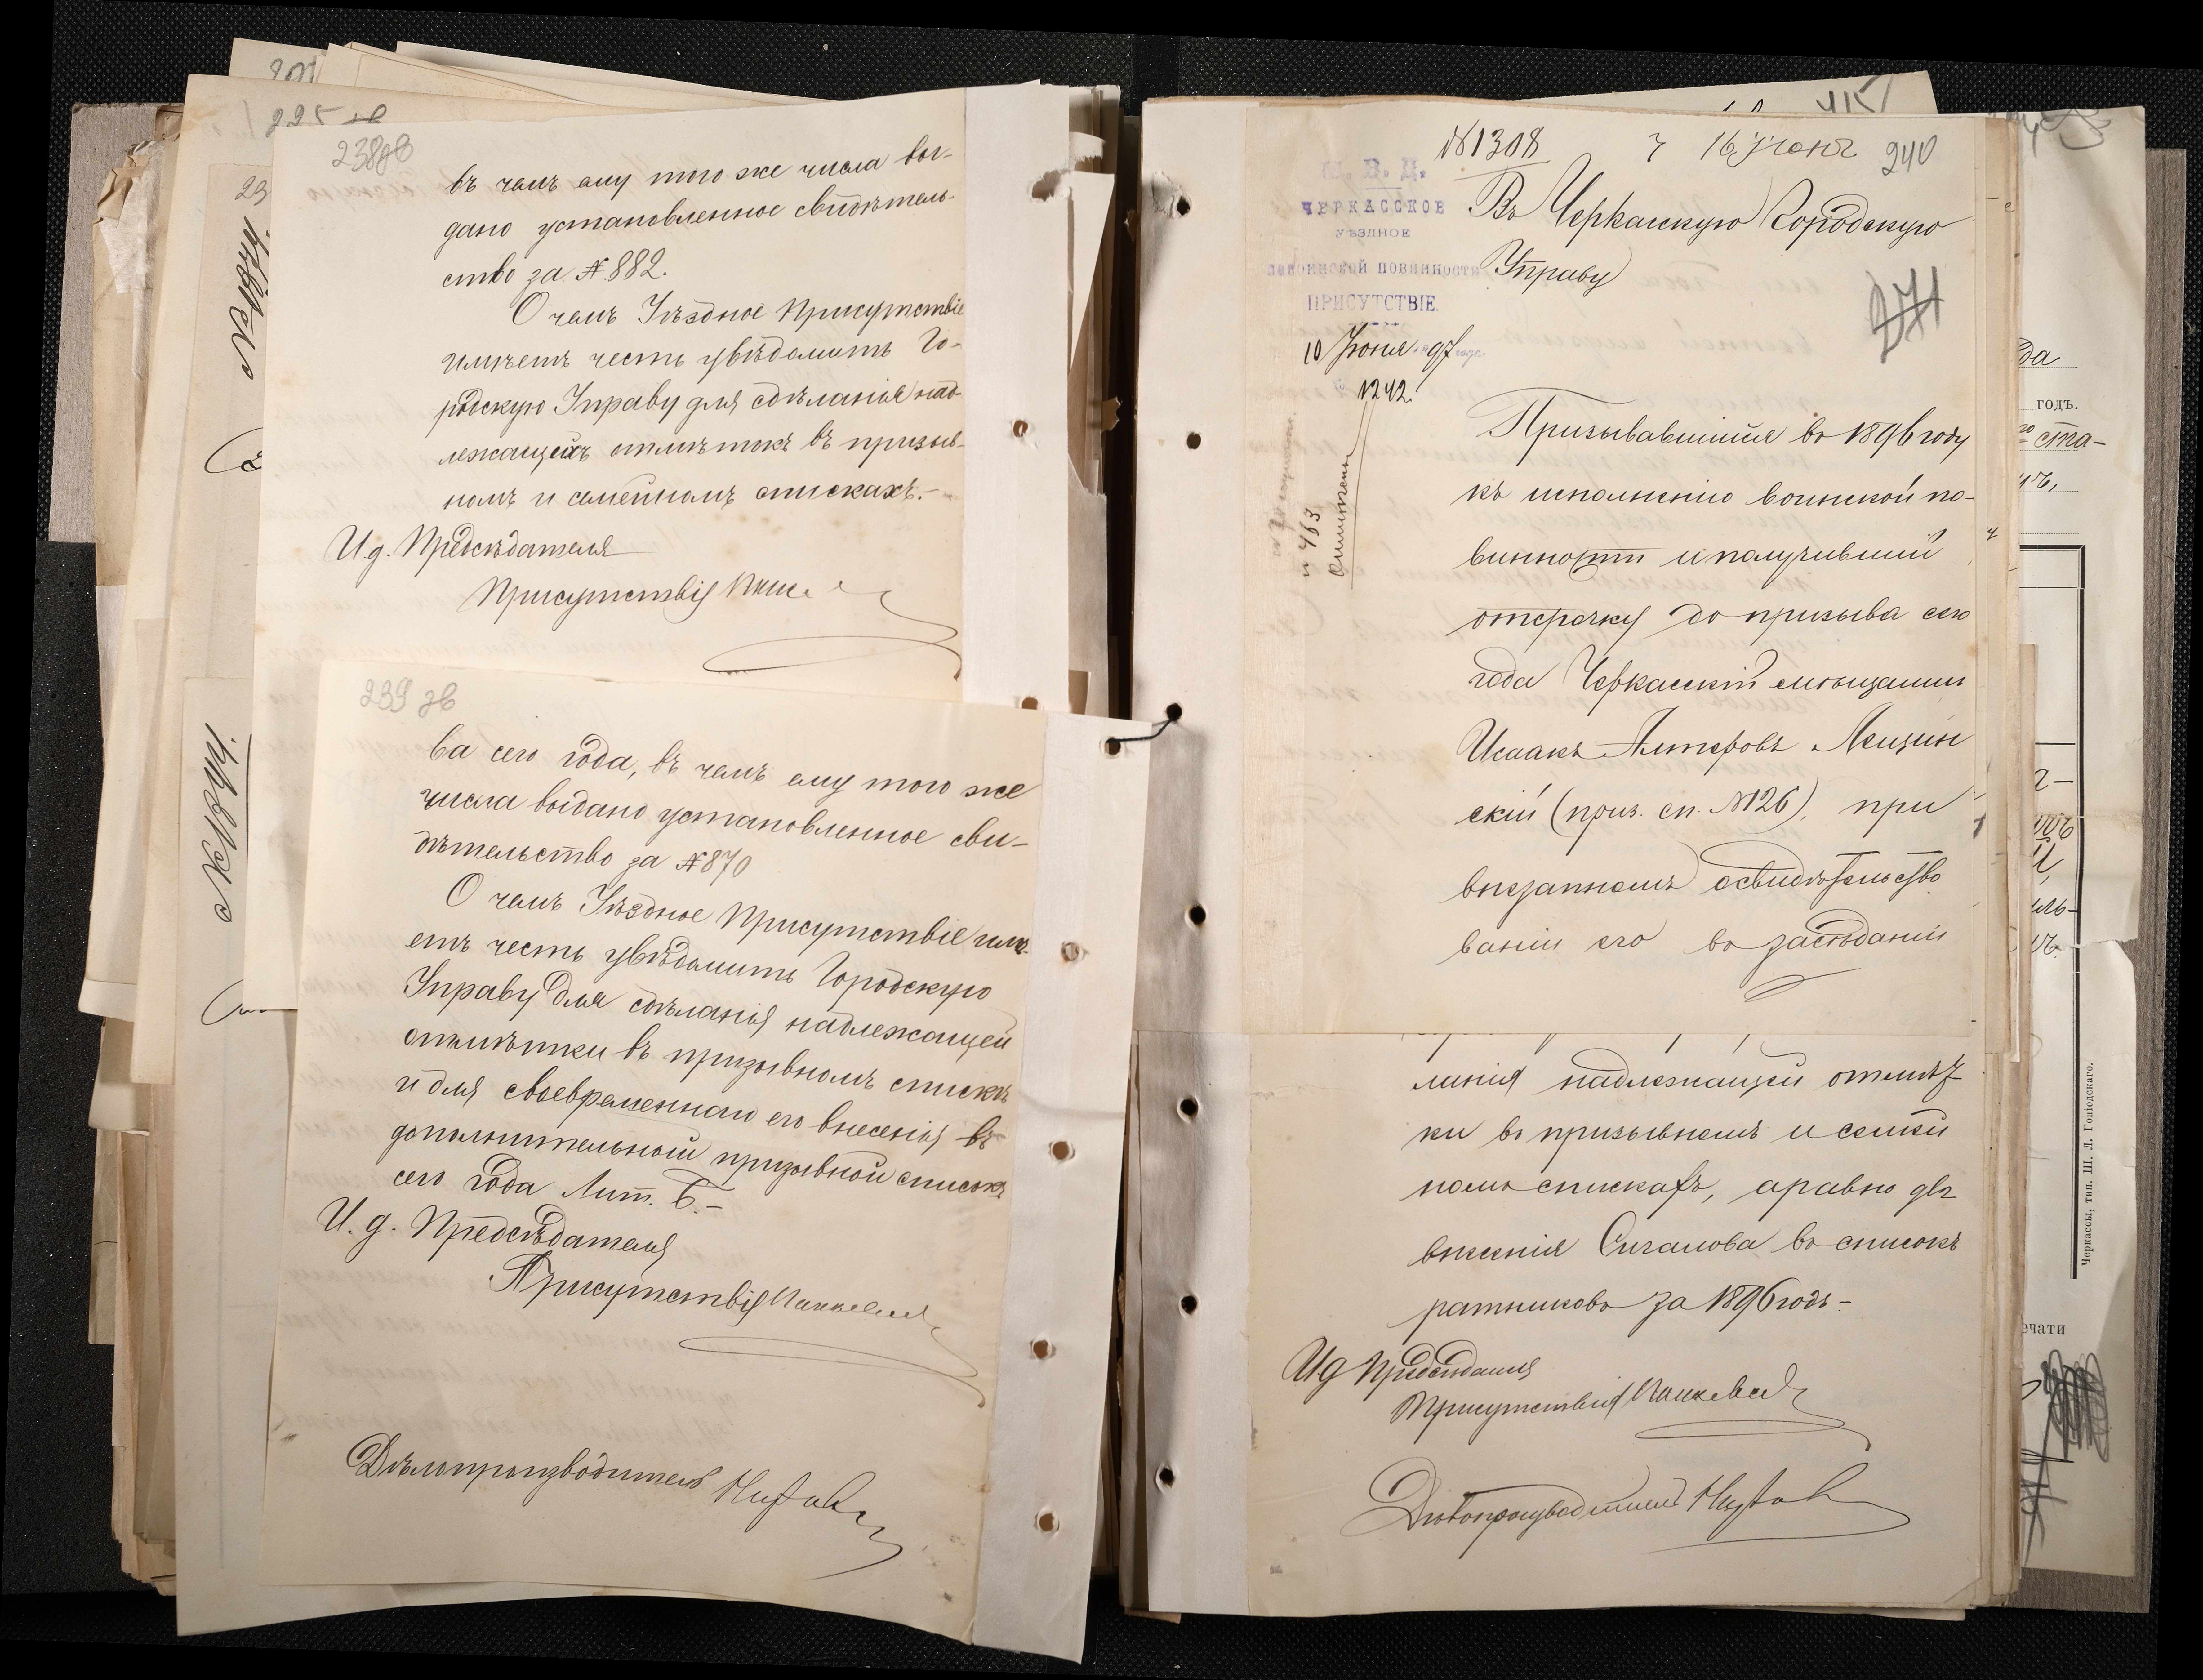 201
225 зв
238 зв
въ чемъ ему того же числа вы-
дано установленное свидѣтель-
ство за №.882.
О чемъ Уѣздное Присутствіе
имѣетъ честь увѣдомить Го-
родскую Управу для сдѣланія над-
лежащихъ отмѣтокъ въ призыв-
номъ и семейномъ спискахъ.-
И д. Предсѣдателя
Присутствія
239 зв
ва сего года, въ чемъ ему того же
числа выдано установленное сви-
дѣтельство за №870
О чемъ Уѣздное Присутствіе имѣ-
етъ честь увѣдомить Городскую
Управу для сдѣланія надлежащей
отмѣтки въ призывномъ спискѣ
и для своевременнаго его внесенія въ
дополнительный призывной списокъ
сего года Лит. Б.-
И. д. Предсѣдателя
Присутствія
Дѣлопроизводитель
№1308
16 Іюня
240
М. В. Д.
ЧЕРКАССКОЕ
УѢЗДНОЕ
ПО ВОИНСКОЙ ПОВИННОСТИ
ПРИСУТСТВІЕ.
10 Іюня 97
1242.
Въ Черкасскую Городскую
Управу
271
и 463
Призывавшійся въ 1896 году
къ исполненію воинской по-
винности и получившій
отсрочку до призыва сего
года Черкасскій мѣщанинъ
Исаакъ Алтеровъ Лещин
скій (приз. сп. №126), при
внезапномъ освидѣтельство
ваніи его въ засѣданіи
ланія надлежащей отмѣт
ки въ призывномъ и семей
номъ спискахъ, а равно для
внесенія Сигалова въ списокъ
ратниковъ за 1896 годъ-
И д Предсѣдателя
Присутствія
Дѣлопроизводитель
415
да
годъ.
ста-
Черкассы, тип. Ш. Л. Гоніодскаго.
ечати